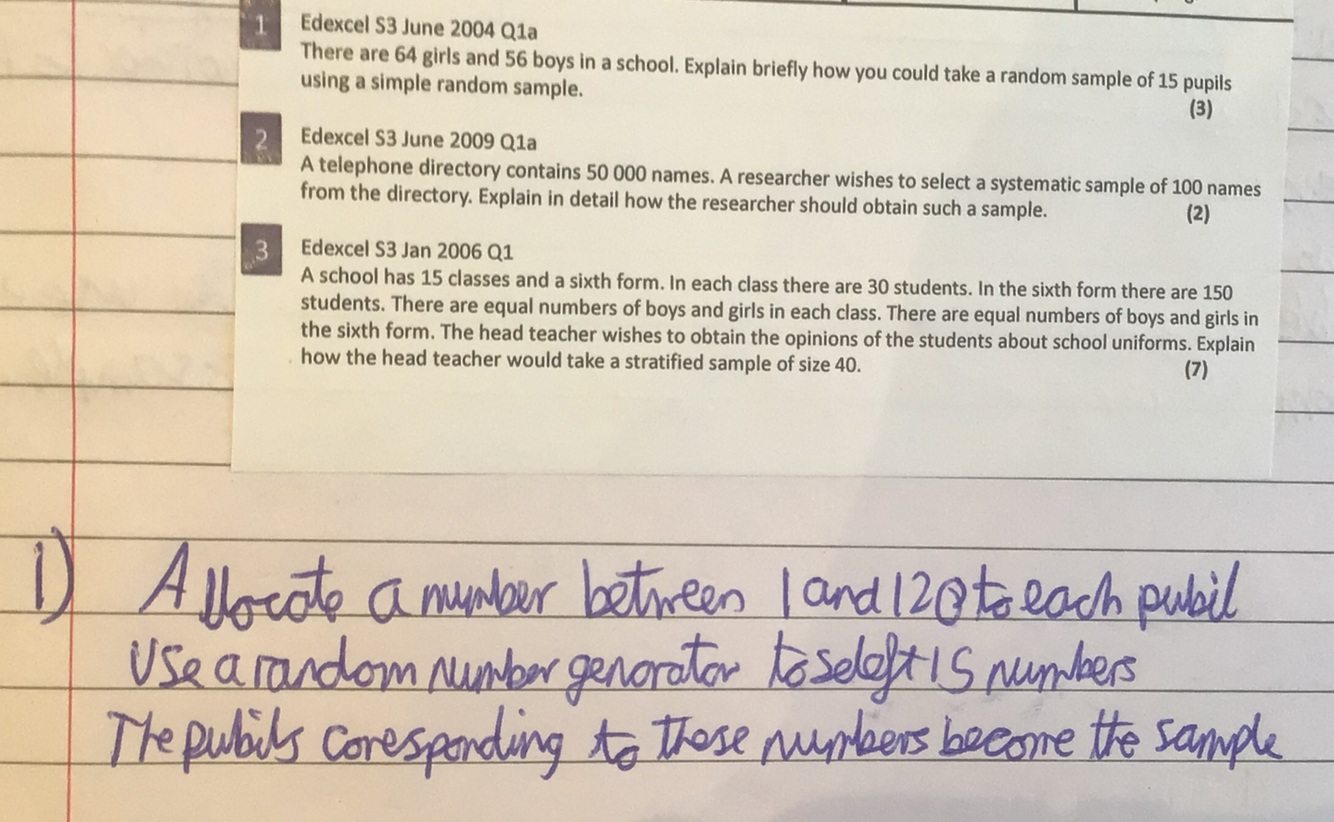 1 Edexcel S3 June 2004 Q1a
There are 64 girls and 56 boys in a school. Explain briefly how you could take a random sample of 15 pupils
using a simple random sample.
(3)
2 Edexcel S3 June 2009 Q1a
A telephone directory contains 50 000 names. A researcher wishes to select a systematic sample of 100 names
from the directory. Explain in detail how the researcher should obtain such a sample. (2)
3 Edexcel S3 Jan 2006 Q1
A school has 15 classes and a sixth form. In each class there are 30 students. In the sixth form there are 150
students. There are equal numbers of boys and girls in each class. There are equal numbers of boys and girls in
the sixth form. The head teacher wishes to obtain the opinions of the students about school uniforms. Explain
how the head teacher would take a stratified sample of size 40. (7)
1) Allocate a number between 1 and 120 to each pubil
Use a random number genorator to seleft 15 numbers
The pubils coresponding to these numbers become the sample